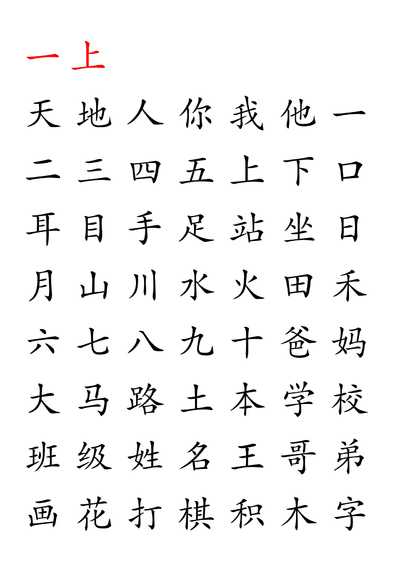 一上
天地人你我他一
二三四五上下口
耳目手足站坐日
月山川水火田禾
六七八九十爸妈
大马路土本学校
班级姓名王哥弟
画花打棋积木字